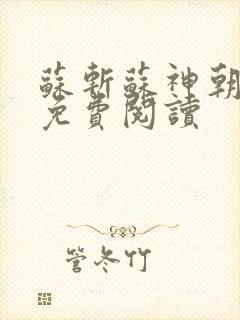 蘇斬蘇神朝
免費閱讀
管冬竹